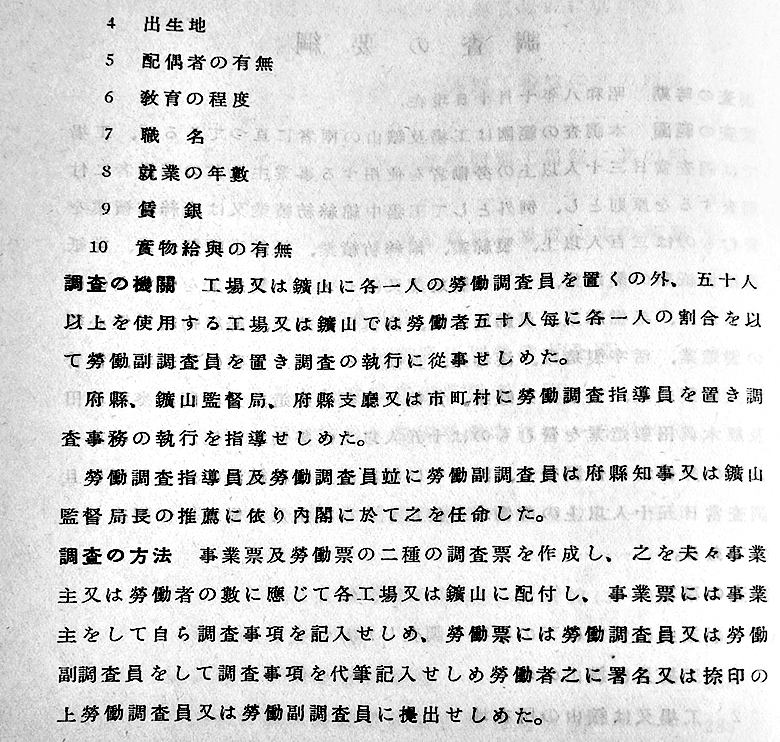 4 出生地
5 配偶者の有無
6 敎育の程度
7 職　名
8 就業の年數
9 賃　銀
10 實物給與の有無
調査の機關　工場又は鑛山に各一人の勞働調査員を置くの外、五十人
以上を使用する工場又は鑛山では勞働者五十人每に各一人の割合を以
て勞働副調査員を置き調査の執行に從事せしめた。
府縣、鑛山監督局、府縣支廳又は市町村に勞働調査指導員を置き調
査事務の執行を指導せしめた。
勞働調査指導員及勞働調査員並に勞働副調査員は府縣知事又は鑛山
監督局長の推薦に依り內閣に於て之を任命した。
調査の方法　事業票及勞働票の二種の調査票を作成し、之を夫々事業
主又は勞働者の數に應じて各工場又は鑛山に配付し、事業票には事業
主をして自ら調査事項を記入せしめ、勞働票には勞働調査員又は勞働
副調査員をして調査事項を代筆記入せしめ勞働者之に署名又は捺印の
上勞働調査員又は勞働副調査員に提出せしめた。